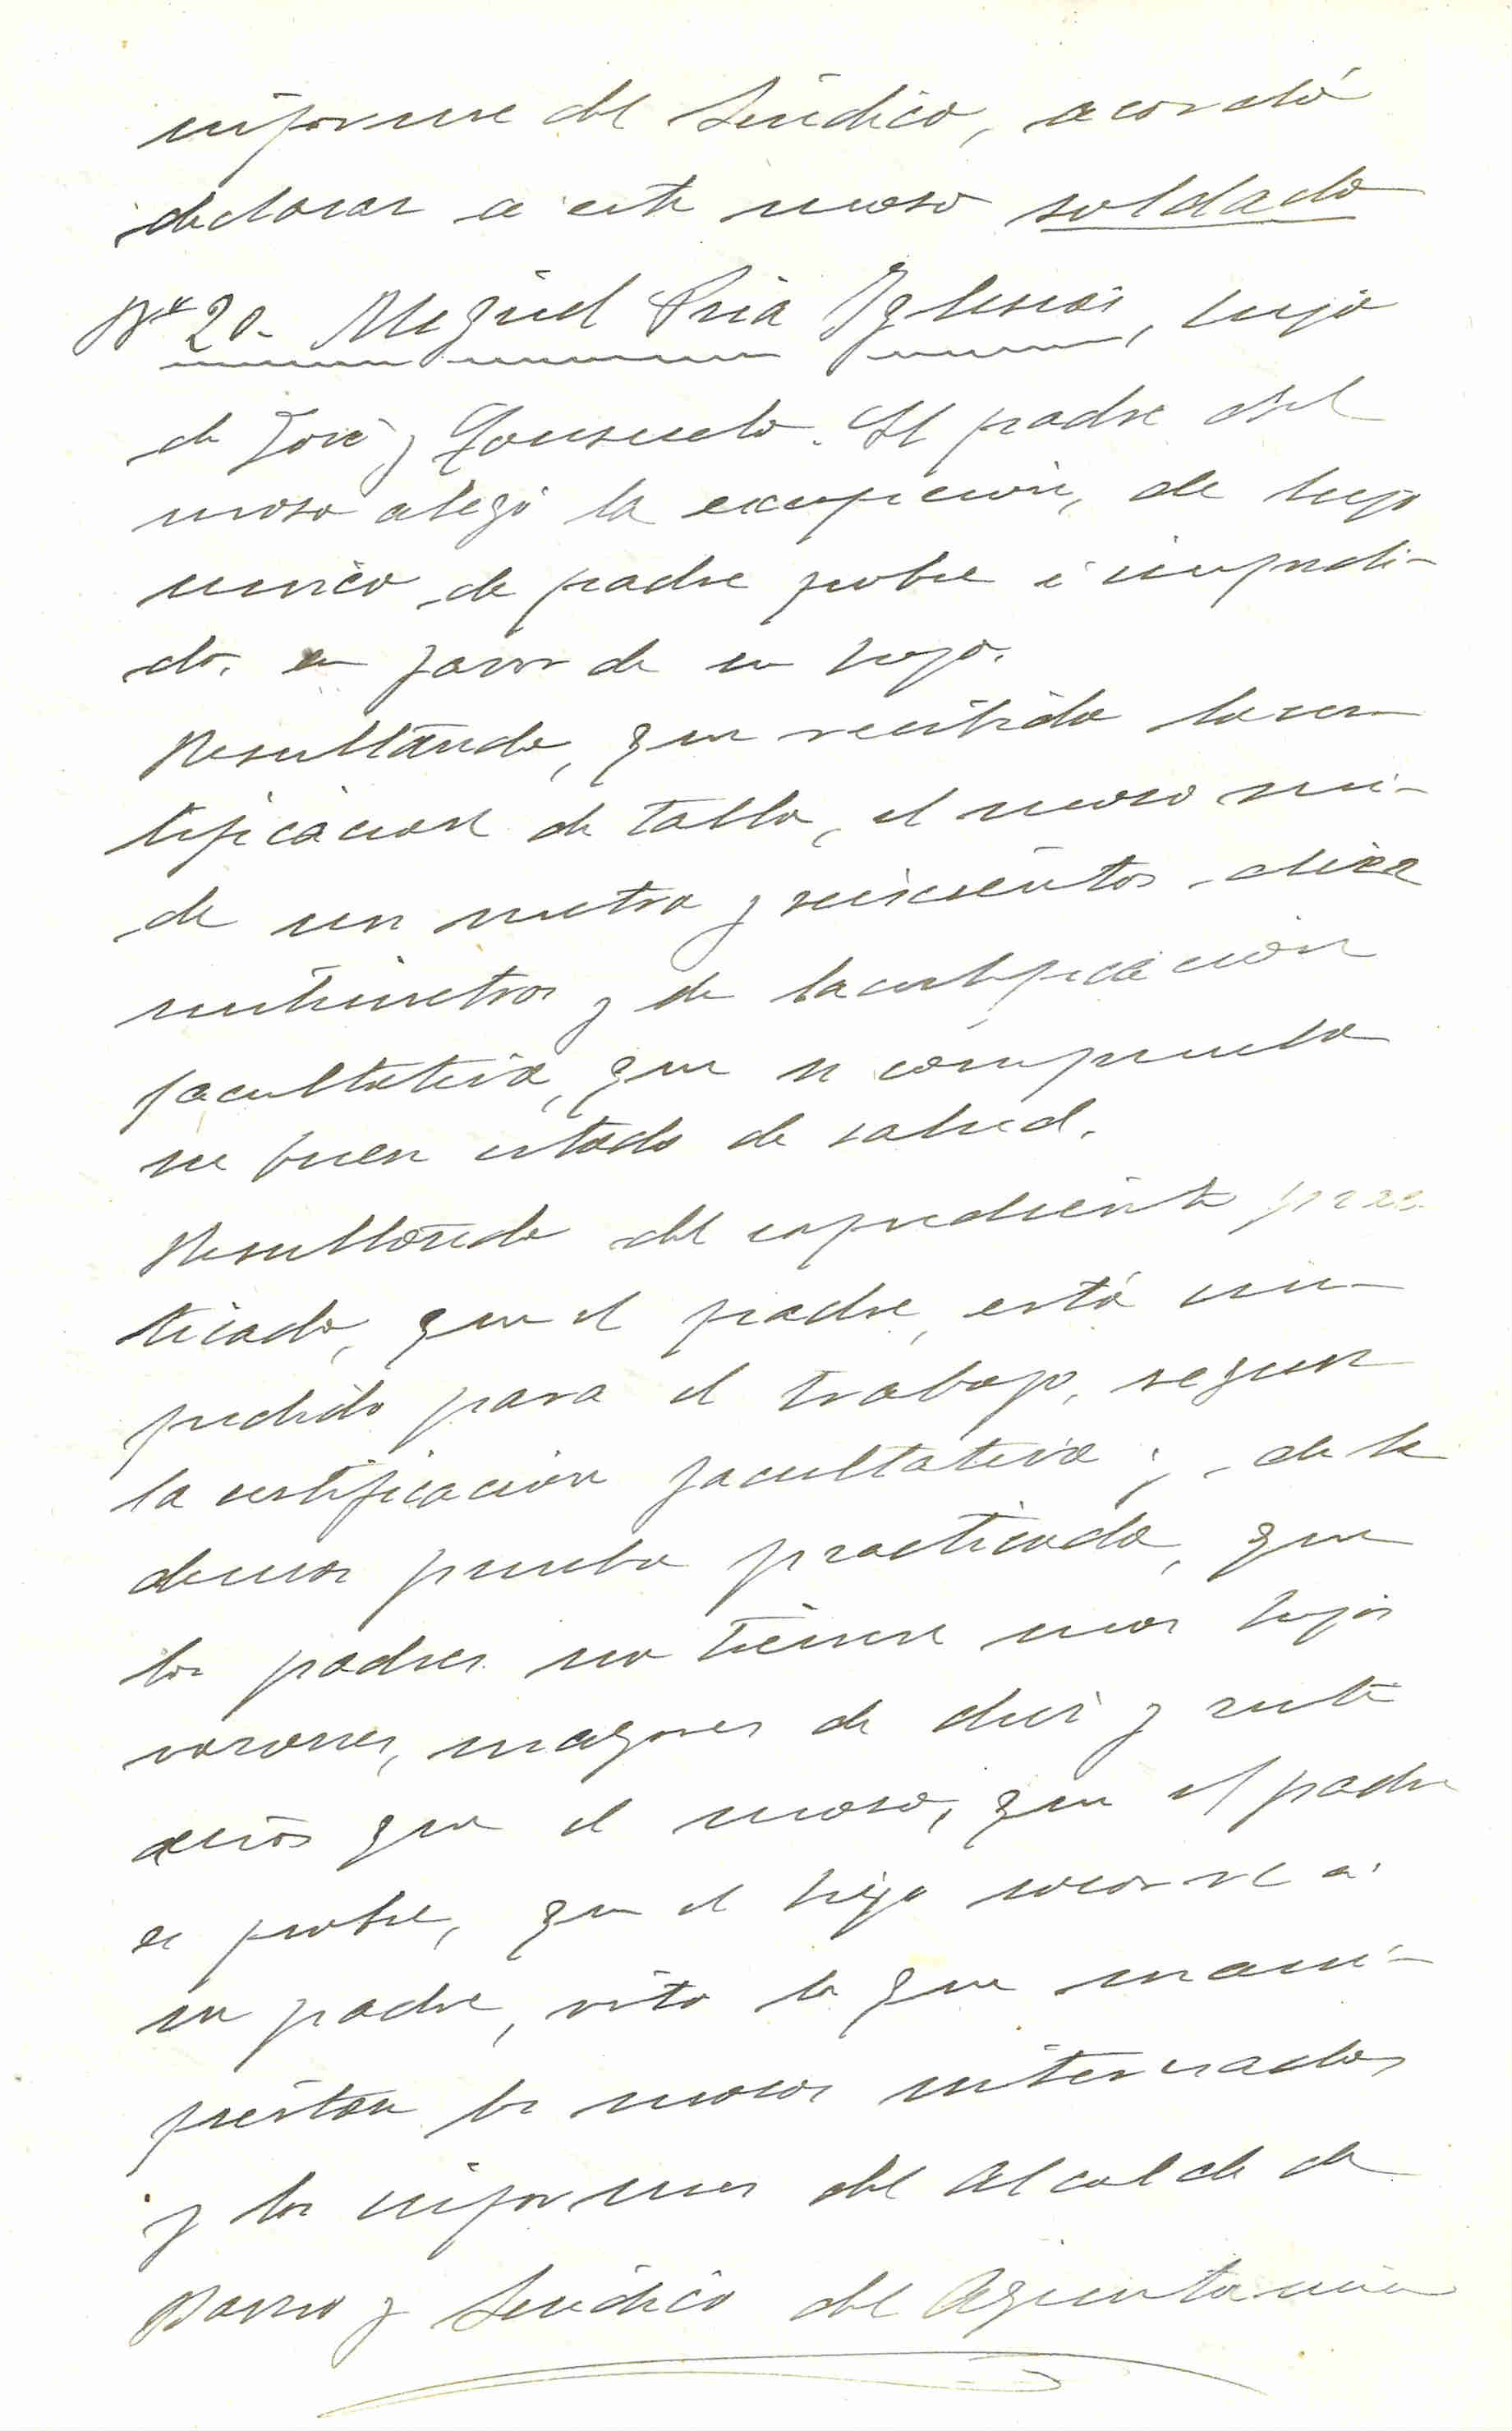 informe del Sindico, acordó
declarar a este moso soldado
Nº 20- Miguel Pria Yglesias, hijo
de José y Consuelo. El padre del
moso alegó la excepción, de hijo
unico de padre pobre é impedi-
do, en favor de su hijo.
Resultando, que recibida la cer-
tificacion de talla, el moso mi-
de un metro y seiscientos diez
milimetros y de la certificacion
facultativa, que se comprueba
su buen estado de salud.
Resultando del expediente prac-
ticado, que el padre, está im-
pedido para el trabajo, segun
la certificacion facultativa; de la
demas prueba practicada, que
los padres no tienen mas hijos
varones, mayores de diez y siete
años que el moso, que el padre
es pobre, que el hijo socorre a
su padre, visto lo que mani-
fiestan los mosos interesados
y los informes del Alcalde de
Barrio y Sindico del Ayuntamien